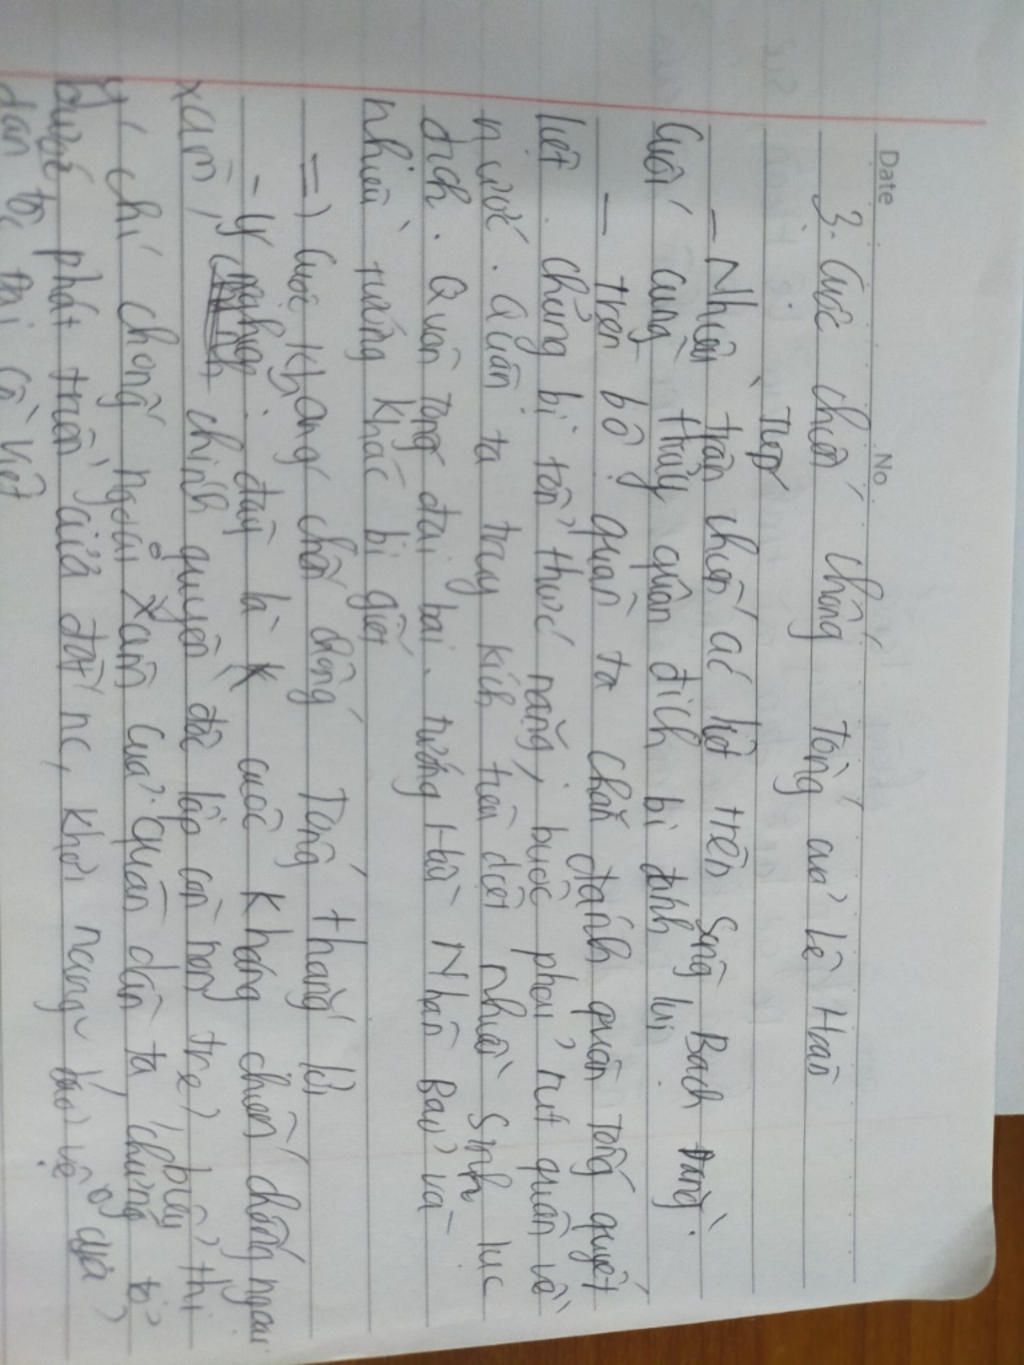 Date No
3. Cuộc chiến chống Tống của Lê Hoàn
- Nhiều trận chiến ác liệt trên Sông Bạch Đằng.
Cuối cùng thủy quân địch bị đánh lui
- trên bộ: quân ta chặn đánh quân Tống quyết
liệt. chúng bị tổn thức nặng, buộc phải rút quân về
nước. Quân ta truy kích tiêu diệt nhiều sinh lực
địch. Quân Tống đại bại. tướng Hầu Nhân Bảo và
nhiều tướng khác bị giết
=) Cuộc kháng chiến chống Tống thắng lợi
- Ý nghĩa: đây là cuộc kháng chiến chống ngoại
xâm, chính quyền độc lập còn non trẻ, biểu thị
ý chí chống ngoại xâm của quân dân ta, chứng tỏ
bước phát triển của đất nc, khả năng bảo vệ của
dân tộc Đại Cồ Việt